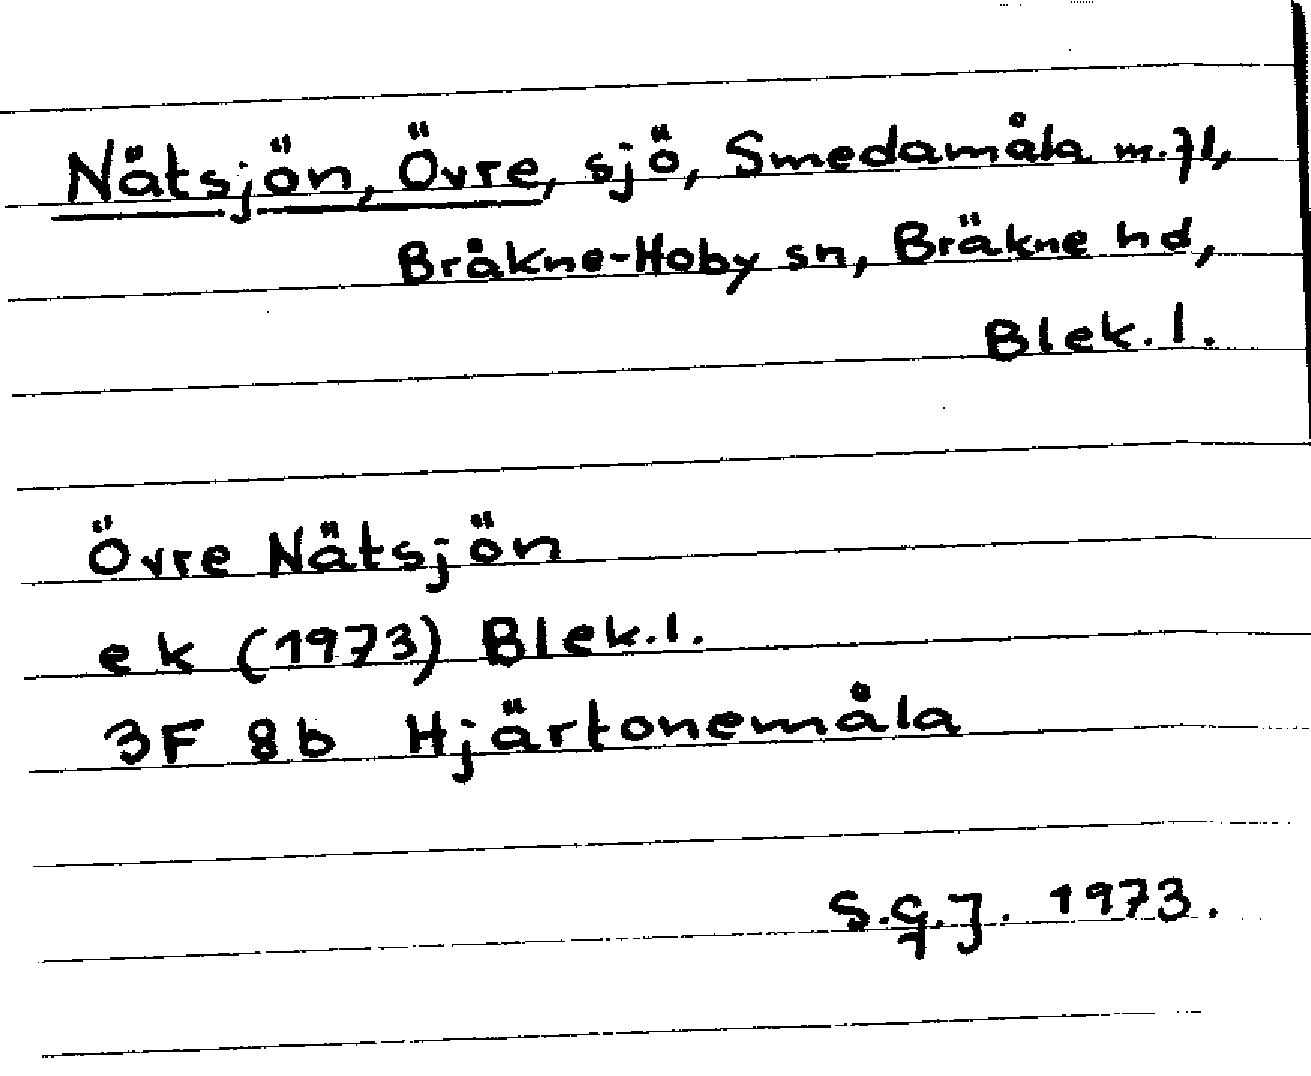 Nätsjön, Övre, sjö, Smedamåla m.fl,
Bräkne-Hoby sn, Bräkne hd,
Blek.l.
Övre Nätsjön
ek (1973) Blek.l.
3F 8b Hjärtonemåla
S.G.J. 1973.